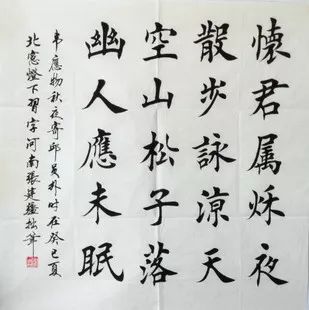 懷君属秌夜
散步詠涼天
空山松子落
幽人應未眠
韋應物秋夜寄邱員外时在癸已夏
北窓燈下習字河南張建強拙筆